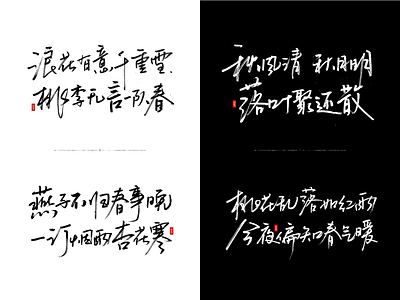 浪花有意千重雪
桃李无言一队春
秋风清 秋月明
落叶聚还散
燕子不归春事晚
一汀烟雨杏花寒
桃花乱落如红雨
今夜偏知春气暖